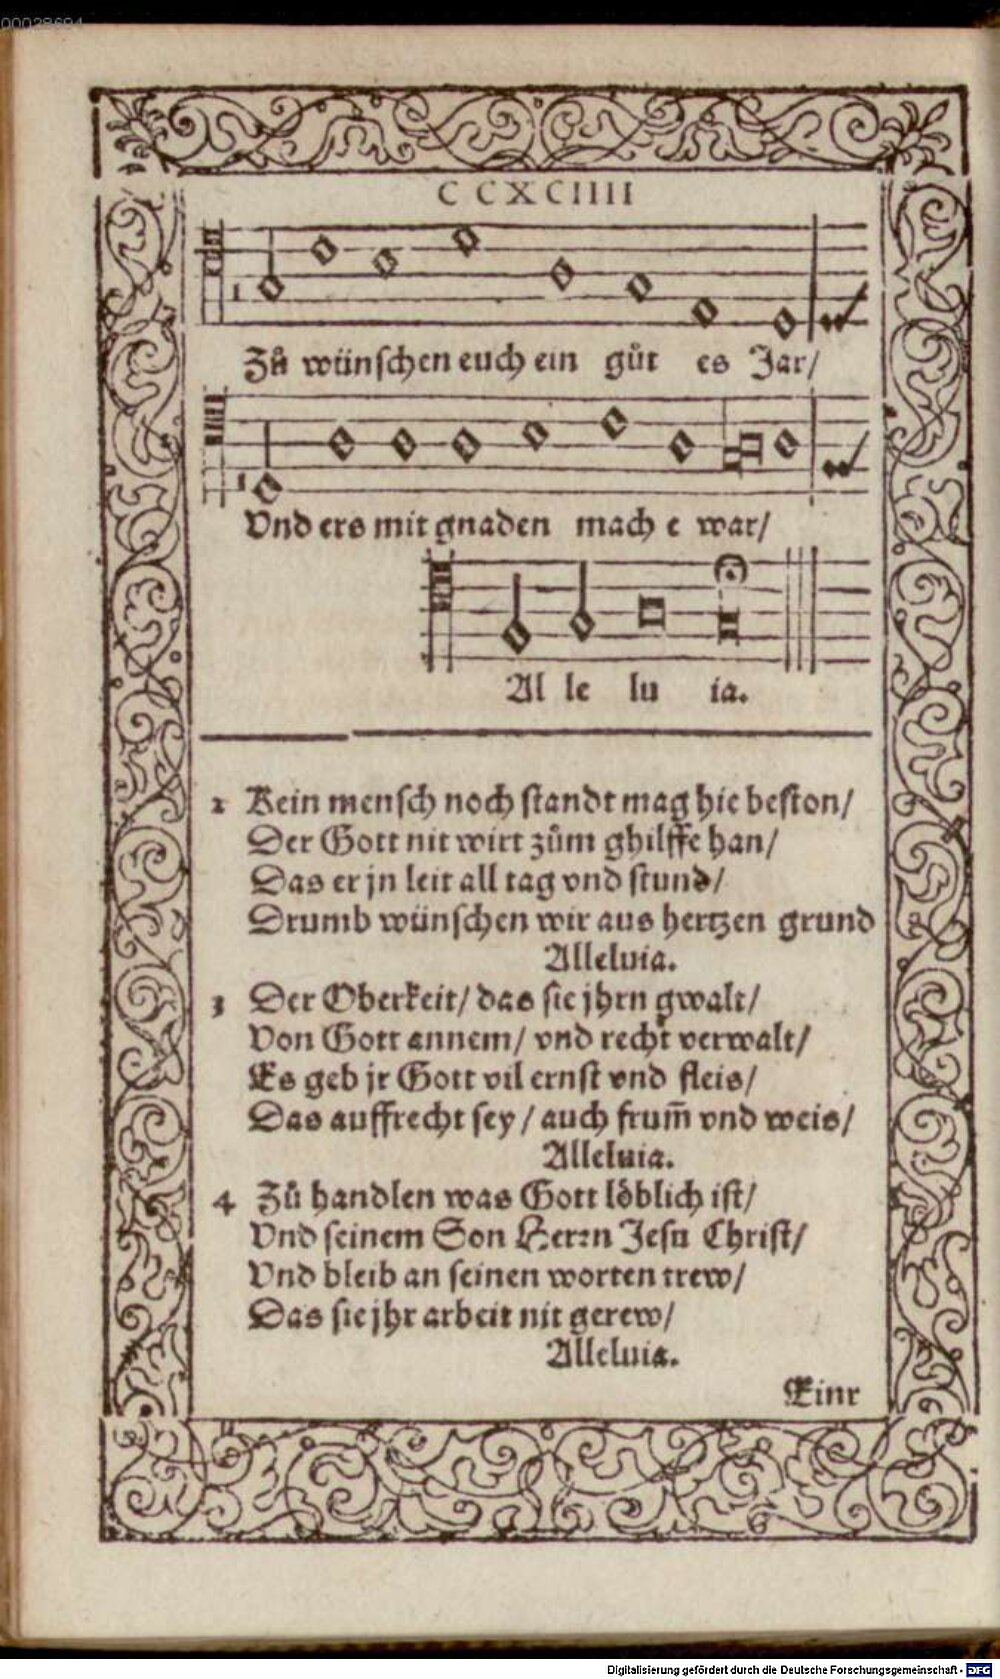 00028694
CCXCIIII
Zů wünschen euch ein gůt es Jar/
Vnd ers mit gnaden mach e war/
Al le lu ia.
2 Kein mensch noch standt mag hie beston/
Der Gott nit wirt zům ghilffe han/
Das er jn leit all tag vnd stund/
Drumb wünschen wir aus hertzen grund
Alleluia.
3 Der Oberkeit/ das sie jhrn gwalt/
Von Gott annem/ vnd recht verwalt/
Es geb jr Gott vil ernst vnd fleis/
Das auffrecht sey/ auch frum̄ vnd weis/
Alleluia.
4 Zů handlen was Gott löblich ist/
Vnd seinem Son Herrn Jesu Christ/
Vnd bleib an seinen worten trew/
Das sie jhr arbeit nit gerew/
Alleluia.
Einr
Digitalisierung gefördert durch die Deutsche Forschungsgemeinschaft - DFG